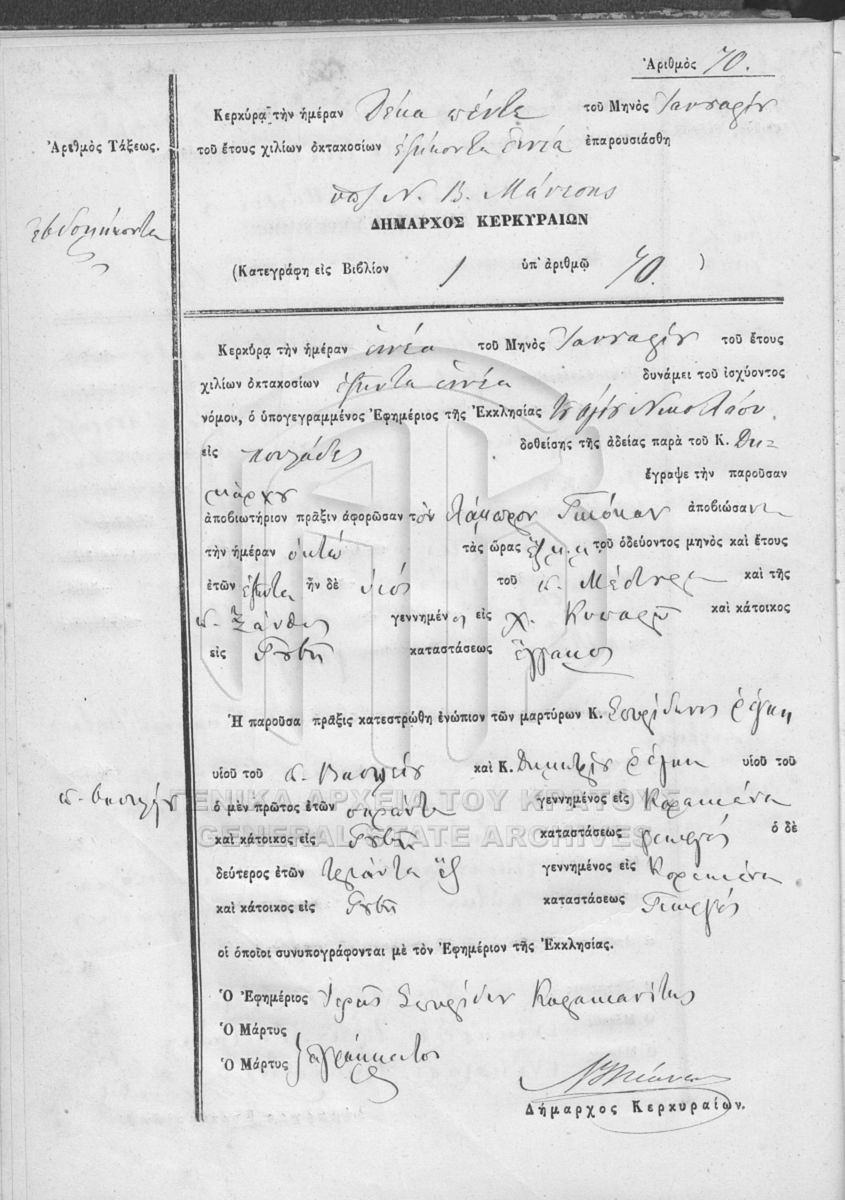 Ἀριθμὸς 70.
Κερκύρᾳ τὴν ἡμέραν δέκα πέντε τοῦ Μηνὸς Ἰανουαρίου
Ἀριθμὸς Τάξεως.
τοῦ ἔτους χιλίων ὀκτακοσίων ἑξήκοντα ἐννέα ἐπαρουσιάσθη
Ν. Β. Μάνεσης
ἑβδομήκοντα
ΔΗΜΑΡΧΟΣ ΚΕΡΚΥΡΑΙΩΝ
(Κατεγράφη εἰς Βιβλίον 1 ὑπ' ἀριθμῷ 70. )
Κερκύρᾳ τὴν ἡμέραν ἐννέα τοῦ Μηνὸς Ἰανουαρίου τοῦ ἔτους
χιλίων ὀκτακοσίων ἑξῆντα ἐννέα δυνάμει τοῦ ἰσχύοντος
νόμου, ὁ ὑπογεγραμμένος Ἐφημέριος τῆς Ἐκκλησίας τοῦ ἁγίου Νικολάου
εἰς δοθείσης τῆς ἀδείας παρὰ τοῦ Κ. Δη-
ἔγραψε τὴν παροῦσαν
μάρχου
ἀποβιωτήριον πρᾶξιν ἀφορῶσαν τὸν Λάμπρον ἀποβιώσαντα
τὴν ἡμέραν ὀκτὼ τὰς ὥρας ἓξ π.μ. τοῦ ὁδεύοντος μηνὸς καὶ ἔτους
ἐτῶν ἑξῆντα ἦν δὲ υἱός τοῦ π. καὶ τῆς
π. Ξάνθης γεννημένος εἰς χ. καὶ κάτοικος
εἰς καταστάσεως ἔγγαμος
Ἡ παροῦσα πρᾶξις κατεστρώθη ἐνώπιον τῶν μαρτύρων Κ. Σπυρίδωνος Ῥέγκη
υἱοῦ τοῦ π. Βασιλείου καὶ Κ. Δημητρίου Ῥέγκη υἱοῦ τοῦ
π. Βασιλείου
ὁ μὲν πρῶτος ἐτῶν σαράντα γεννημένος εἰς Κορακιάνα
ΓΕΝΙΚΑ ΑΡΧΕΙΑ ΤΟΥ ΚΡΑΤΟΥΣ
GENERAL STATE ARCHIVES
καὶ κάτοικος εἰς καταστάσεως γεωργός ὁ δὲ
δεύτερος ἐτῶν τριάντα ἓξ γεννημένος εἰς Κορακιάνα
καὶ κάτοικος εἰς καταστάσεως Γεωργός
οἱ ὁποῖοι συνυπογράφονται μὲ τὸν Ἐφημέριον τῆς Ἐκκλησίας.
Ὁ Ἐφημέριος Ἱερεὺς Σπυρίδων Κορακιανίτης
Ὁ Μάρτυς
Ὁ Μάρτυς ἀγράμματοι
Δήμαρχος Κερκυραίων.